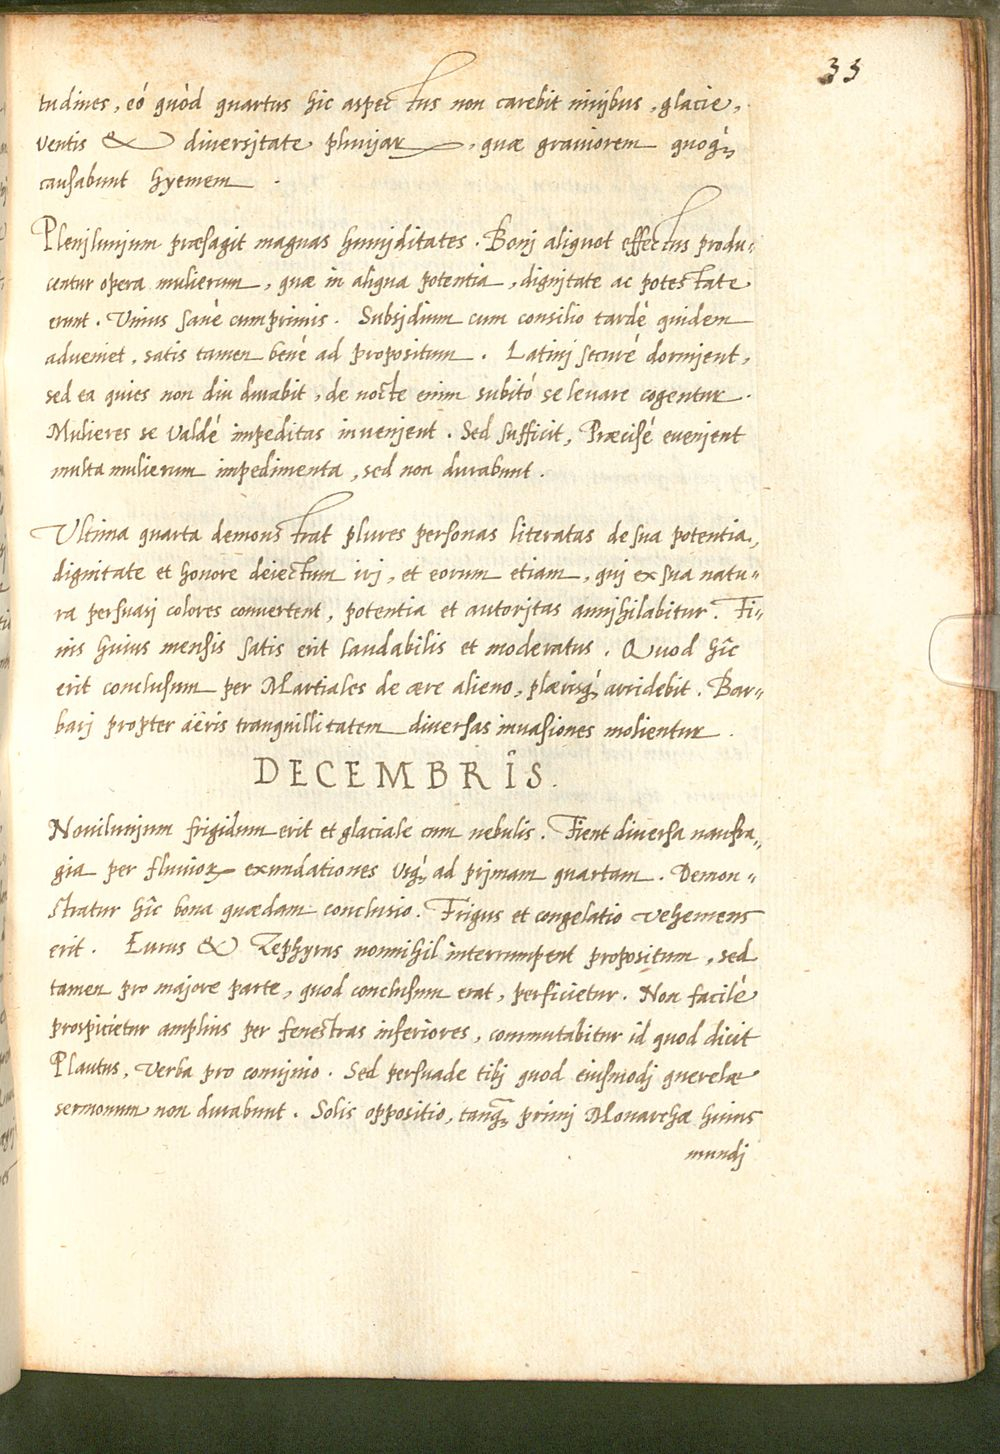 33
tudines, eó quòd quartus hic aspectus non carebit nivibus, glacie,
ventis & diversitate pluviar, quæ graviorem quoq́;
causabunt hyemem.
Plenilunium præsagit magnas humiditates. Bonj aliquot effectus produ„
centur opera mulierum, quæ in aliqua potentia, dignitate ac potestate
erunt. Vinus sanè cumprimis. Subsidium cum consilio tardè quidem
adveniet, satis tamen benè ad propositum. Latinj securè dormient,
sed ea quies non diu durabit, de nocte enim subitò se levare cogentur.
Mulieres se valdè impeditas invenient. Sed sufficit, Præcisè evenient
multa mulierum impedimenta, sed non durabunt.
Ultima quarta demonstrat plures personas literatas de sua potentia,
dignitate et honore deiectum irj, et eorum etiam, quj ex sua natu„
ra persuasi colores convertent, potentia et autoritas annihilabitur. Fi„
nis huius mensis satis erit laudabilis et moderatus. Quod hîc
erit conclusum per Martiales de ære alieno, plærisq́; arridebit. Bar„
barj propter aëris tranquillitatem diversas invasiones molientur.
DECEMBRÎS.
Novilunium frigidum erit et glaciale cum nebulis. Fient diversa naufra„
gia per fluvior exundationes usq́; ad primam quartam. Demon„
stratur hîc bona quædam conclusio. Frigus et congelatio vehemens
erit. Eurus & Zephyrus nonnihil interrumpent propositum, sed
tamen pro majore parte, quod conclusum erat, perficietur. Non facilè
prospicietur amplius per fenestras inferiores, commutabitur id quod dicit
Plautus, verba pro convivio. Sed persuade tibj quod eiusmodj querelæ
sermonum non durabunt. Solis oppositio, tanq̃; primj Monarchæ huius
mundj